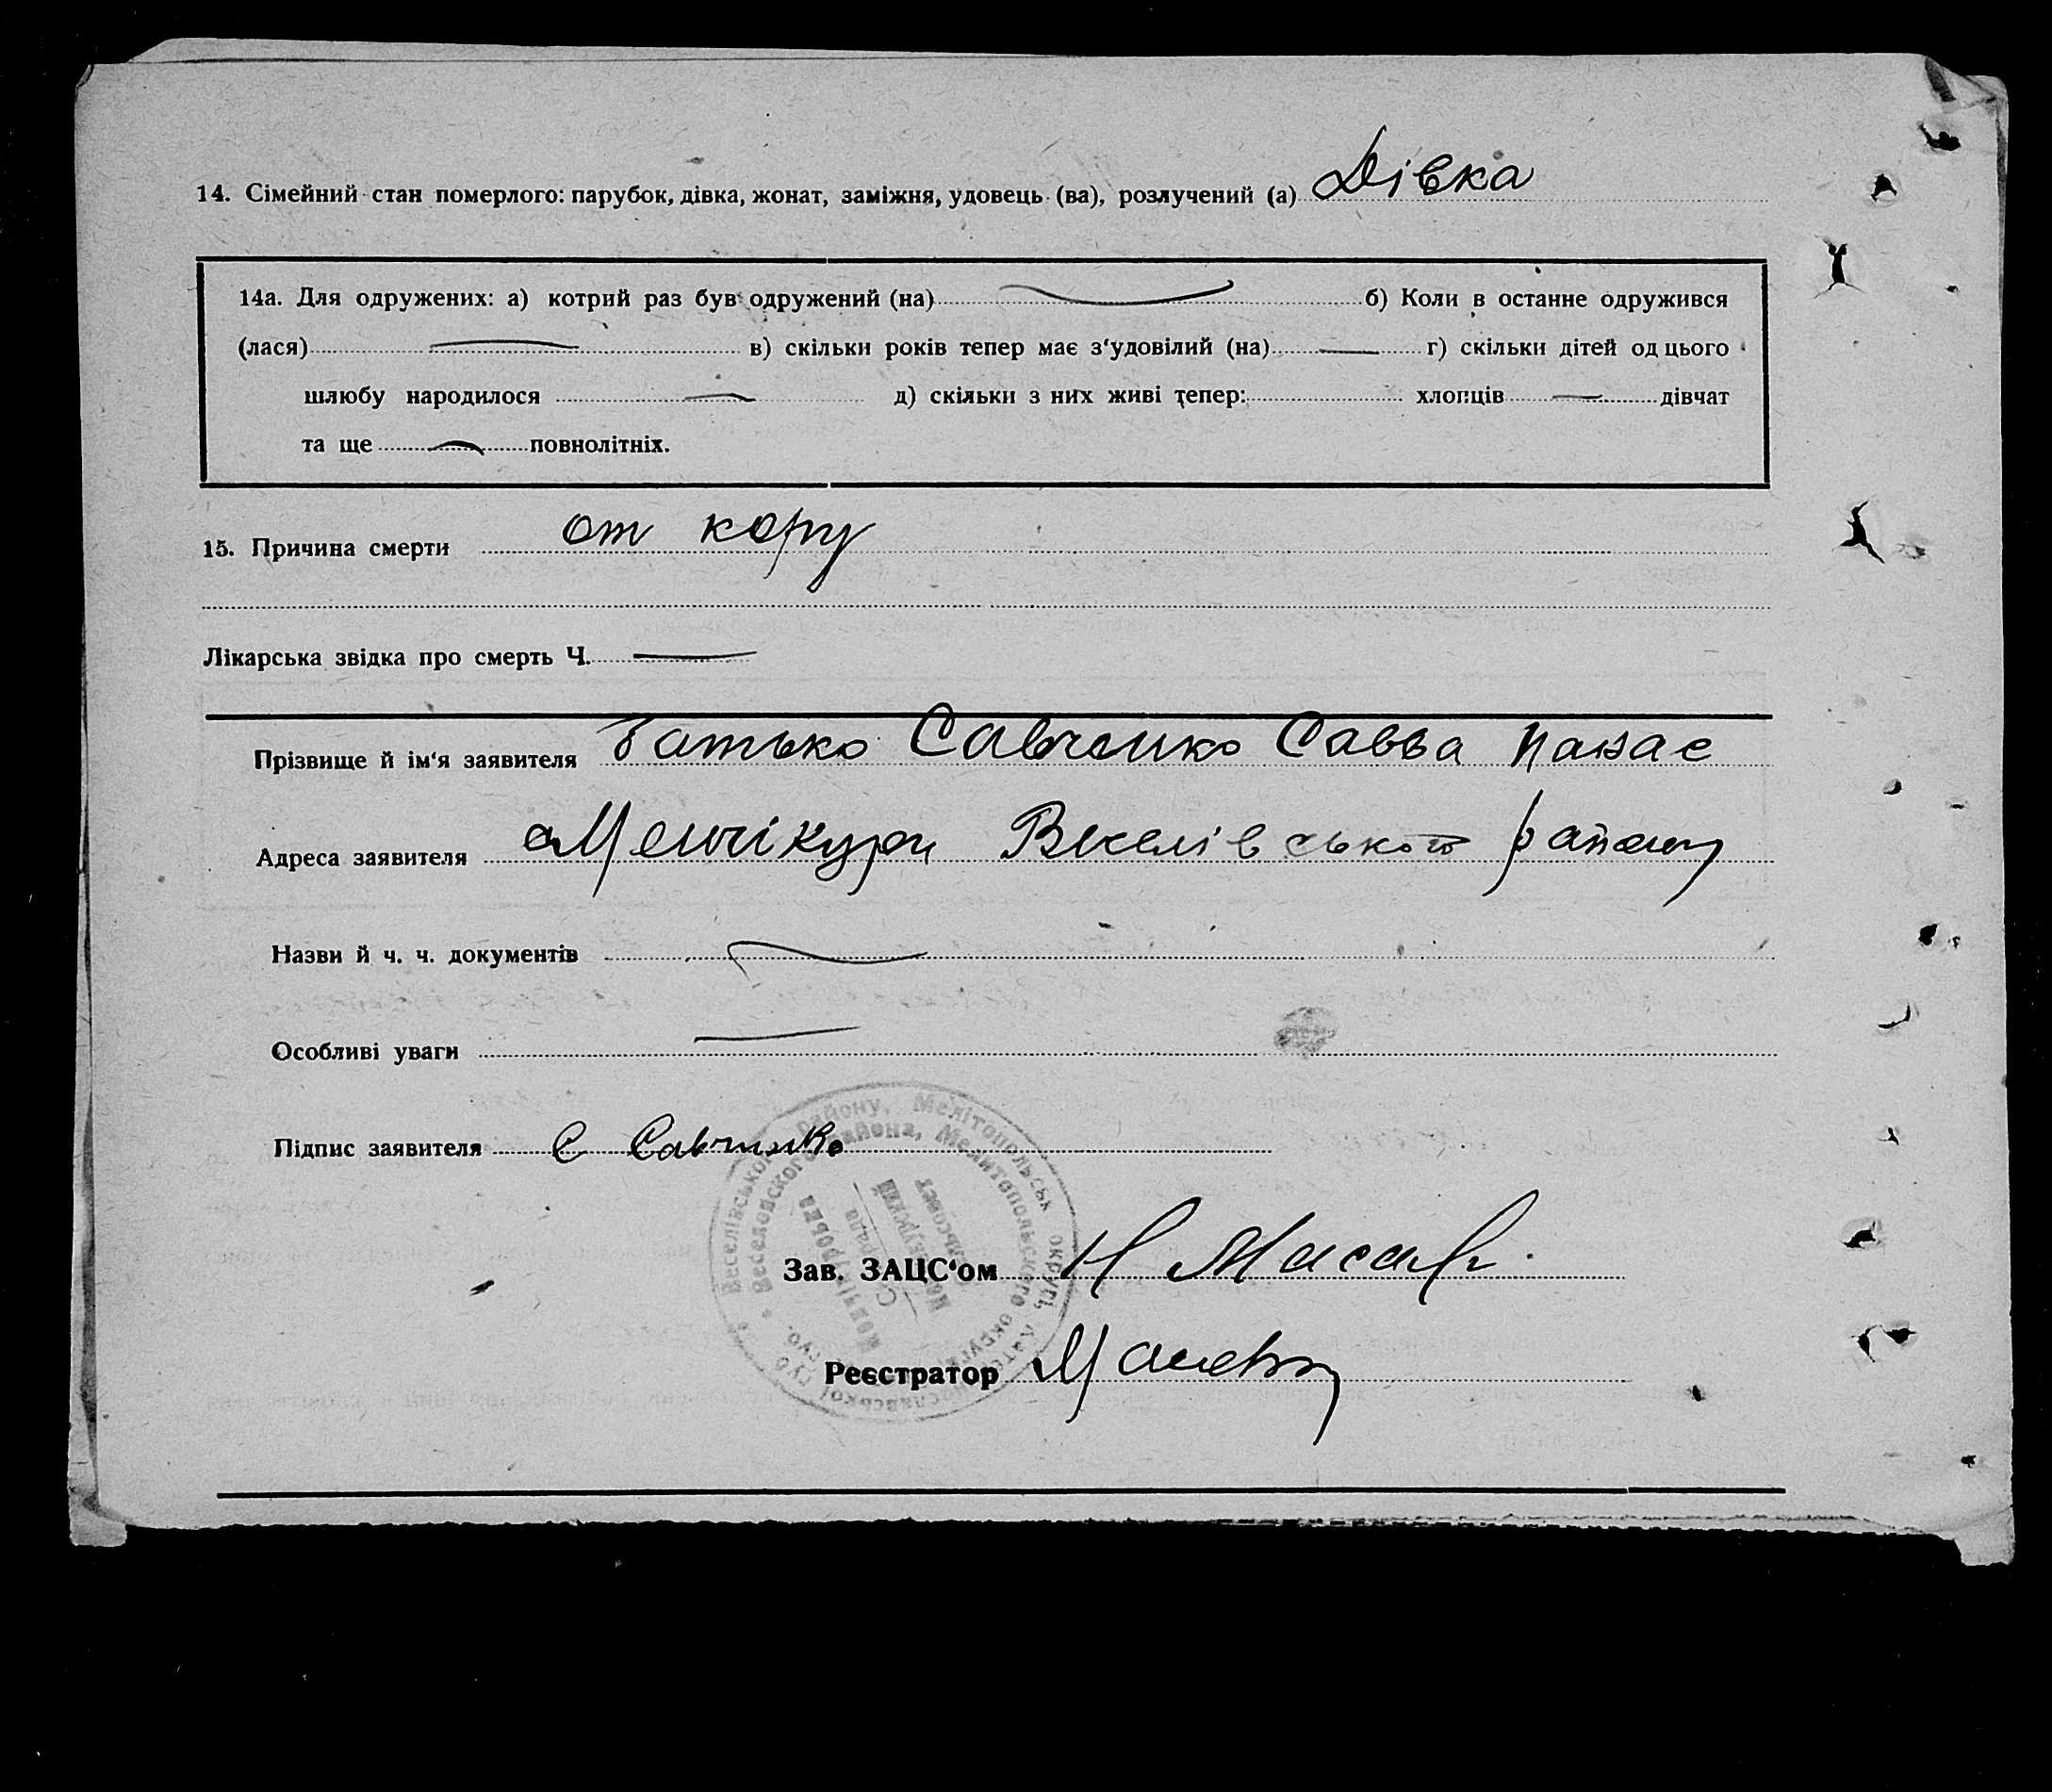 14. Сімейний стан померлого: парубок, дівка, жонат, заміжня, удовець (ва), розлучений (а) Дівка
14а. Для одружених: а) котрий раз був одружений (на) б) Коли в останне одружився
(лася) в) скільки років тепер має з'удовілий (на) г) скільки дітей од цього
шлюбу народилося д) скільки з них живі тепер: хлопців дівчат
та ще повнолітніх.
15. Причина смерти от кору
Лікарська звідка про смерть Ч.
Прізвище й ім'я заявителя Батько Савченко Савва Панас
Адреса заявителя Менчікури Веселівського району
Назви й ч. ч. документів
Особливі уваги
Підпис заявителя С Савченко
Веселівського району, Мелітопольськ округі,
Веселовского района, Мелитопольского округа
Зав. ЗАЦС'ом Н
Реєстратор